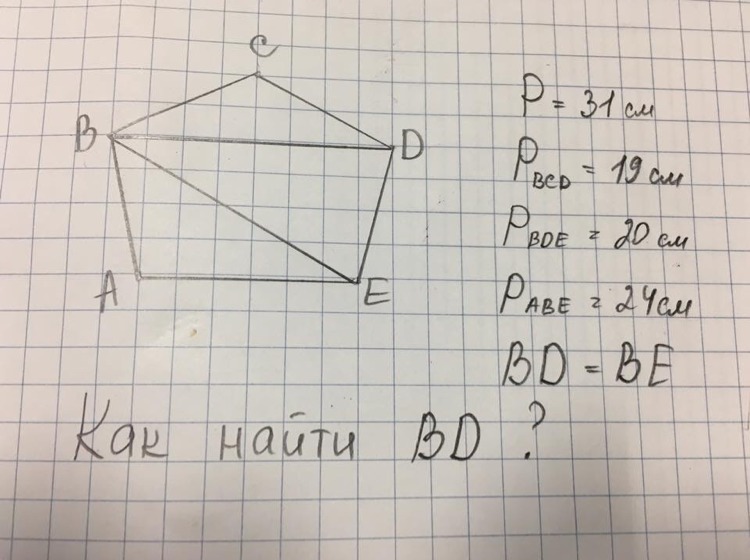 C
B
D
A
E
P = 31 см
P BCD = 19 см
P BDE = 20 см
P ABE = 24 см
BD = BE
Как найти BD ?